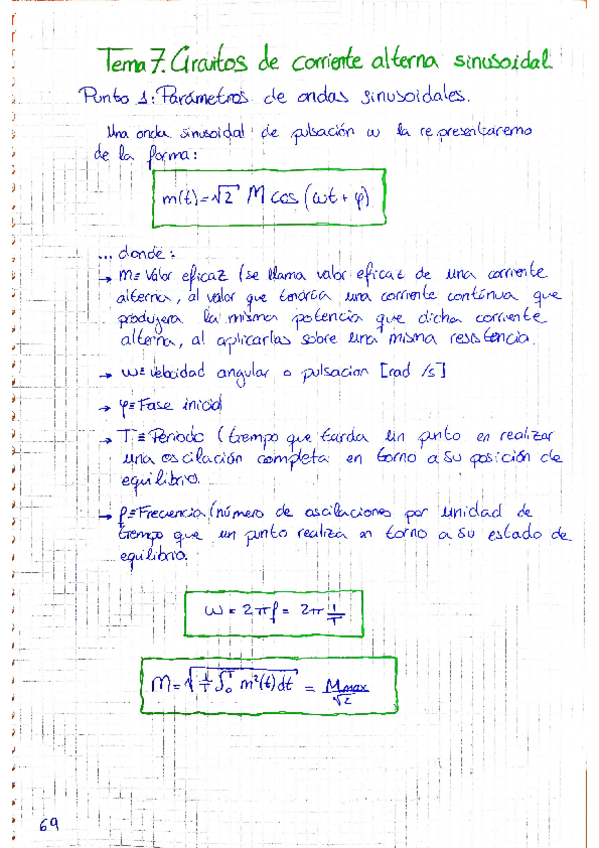 Tema 7. Circuitos de corriente alterna sinusoidal
Punto 1: Parámetros de ondas sinusoidales.
Una onda sinusoidal de pulsación ω la representaremo
de la forma:
m(t) = √2 M cos (ωt + φ)
... donde:
→ M ≡ Valor eficaz (se llama valor eficaz de una corriente
alterna, al valor que tendría una corriente contínua que
produjera la misma potencia que dicha corriente
alterna, al aplicarlas sobre una misma resistencia.
→ ω ≡ Velocidad angular o pulsacion [rad /s]
→ φ ≡ Fase inicial
→ T ≡ Periodo (tiempo que tarda un punto en realizar
una oscilación completa en torno a su posición de
equilibrio.
→ f ≡ Frecuencia (número de oscilaciones por unidad de
tiempo que un punto realiza en torno a su estado de
equilibrio.
ω = 2πf = 2π 1/T
M = √(1/T ∫₀ᵀ m²(t) dt) = Mmax/√2
69